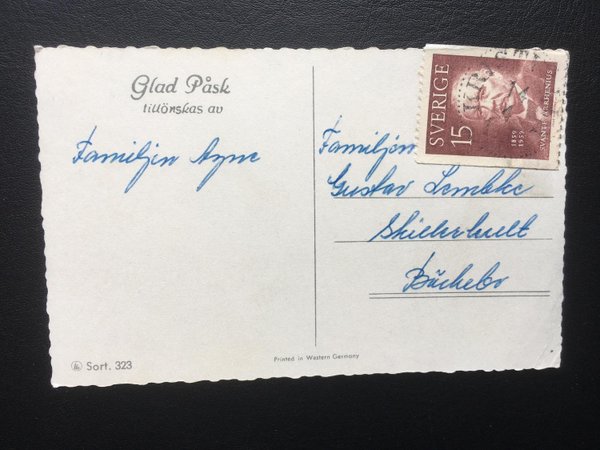 Glad Påsk
tillönskas av
Familjen
Familjen
Gustav Lembke
Bäckebo
SVERIGE
15
1859
1959
SVANTE ARRHENIUS
Printed in Western Germany
Sort. 323